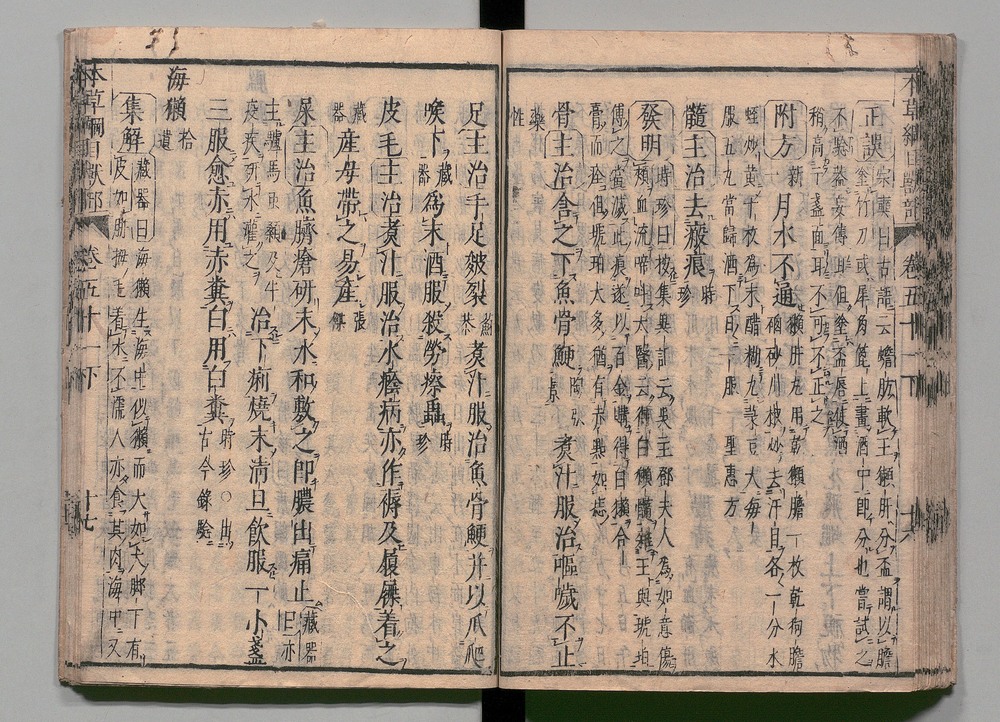 本草綱目獸部 卷五十一下
正誤 宗奭曰古語云蟾肪軟玉獺肝分盃謂以膽
塗竹刀或犀角篦上畫酒中即分也嘗試之
不驗蓋妄傳耳但塗盃唇使酒
稍高于盞面耳不可不正之
附方 新一 月水不通 獺肝丸用乾獺膽一枚乾狗膽
硇砂川椒炒去汗目各一分水
蛭炒黃十枚為末醋糊丸菉豆大每
服五丸當歸酒下日一服 聖惠方
髓主治去瘢痕 時珍
發明 時珍曰按集異記云吳主鄧夫人為如意傷
頰血流啼叫太醫云得白獺髓雜玉與琥珀
傅之當滅此痕遂以百金購得白獺合
膏而痊但琥珀太多猶有赤點如痣
骨主治含之下魚骨鯁 陶弘景 煮汁服治嘔噦不止
藥性
足主治手足皴裂 蘇恭 煮汁服治魚骨鯁并以爪爬
喉下 藏器 為末酒服殺勞瘵蟲 時珍
皮毛主治煮汁服治水癊病亦作褥及履屧着之
藏器 產母帶之易產 張傑
屎主治魚臍瘡研末水和敷之即膿出痛止 藏器曰亦
主驢馬虫顙及牛
疫疾研水灌之 治下痢燒末清旦飲服一小盞
三服愈赤用赤糞白用白糞 時珍○出
古今錄驗
海獺 拾遺
集解 藏器曰海獺生海中似獺而大如犬脚下有
皮如胼拇毛着水不濡人亦食其肉海中又
本草綱目獸部 卷五十一下 十七